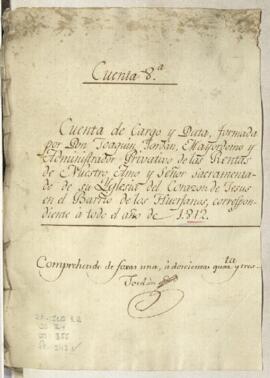 Cuenta 8.a
Cuenta de Cargo y Data, formada
por Dn. Joaquin Jordán, Mayordomo y
Administrador Privativo de las Rentas
de Nuestro Amo y Señor Sacramenta-
do de su Yglesia del Corazon de Jesus
en el Barrio de los Huerfanos, correspon-
diente à todo el año de 1812.
Comprehende de foxas una, à doscientas quarta y tres.
Jordán